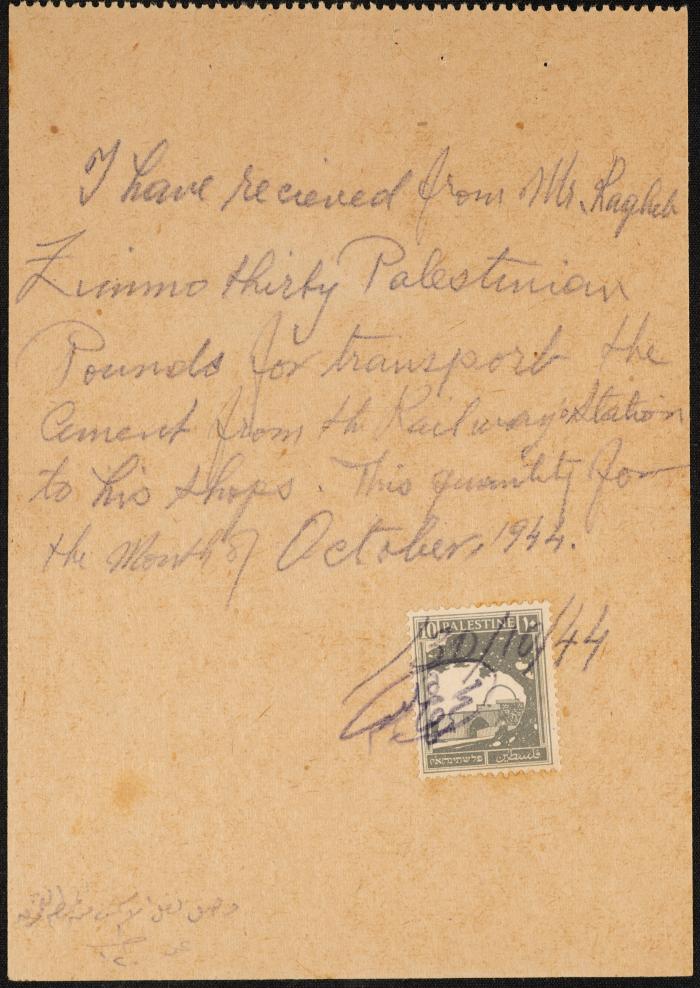 I have recieved from Mr. Ragheb
Zimmo thirty Palestinian
Pounds for transport the
Cement from the Railway Station
to his shops. This quantity for
the Month of October, 1944.
30/10/44
10 PALESTINE ١٠
فلسطين פלשתינה א״י